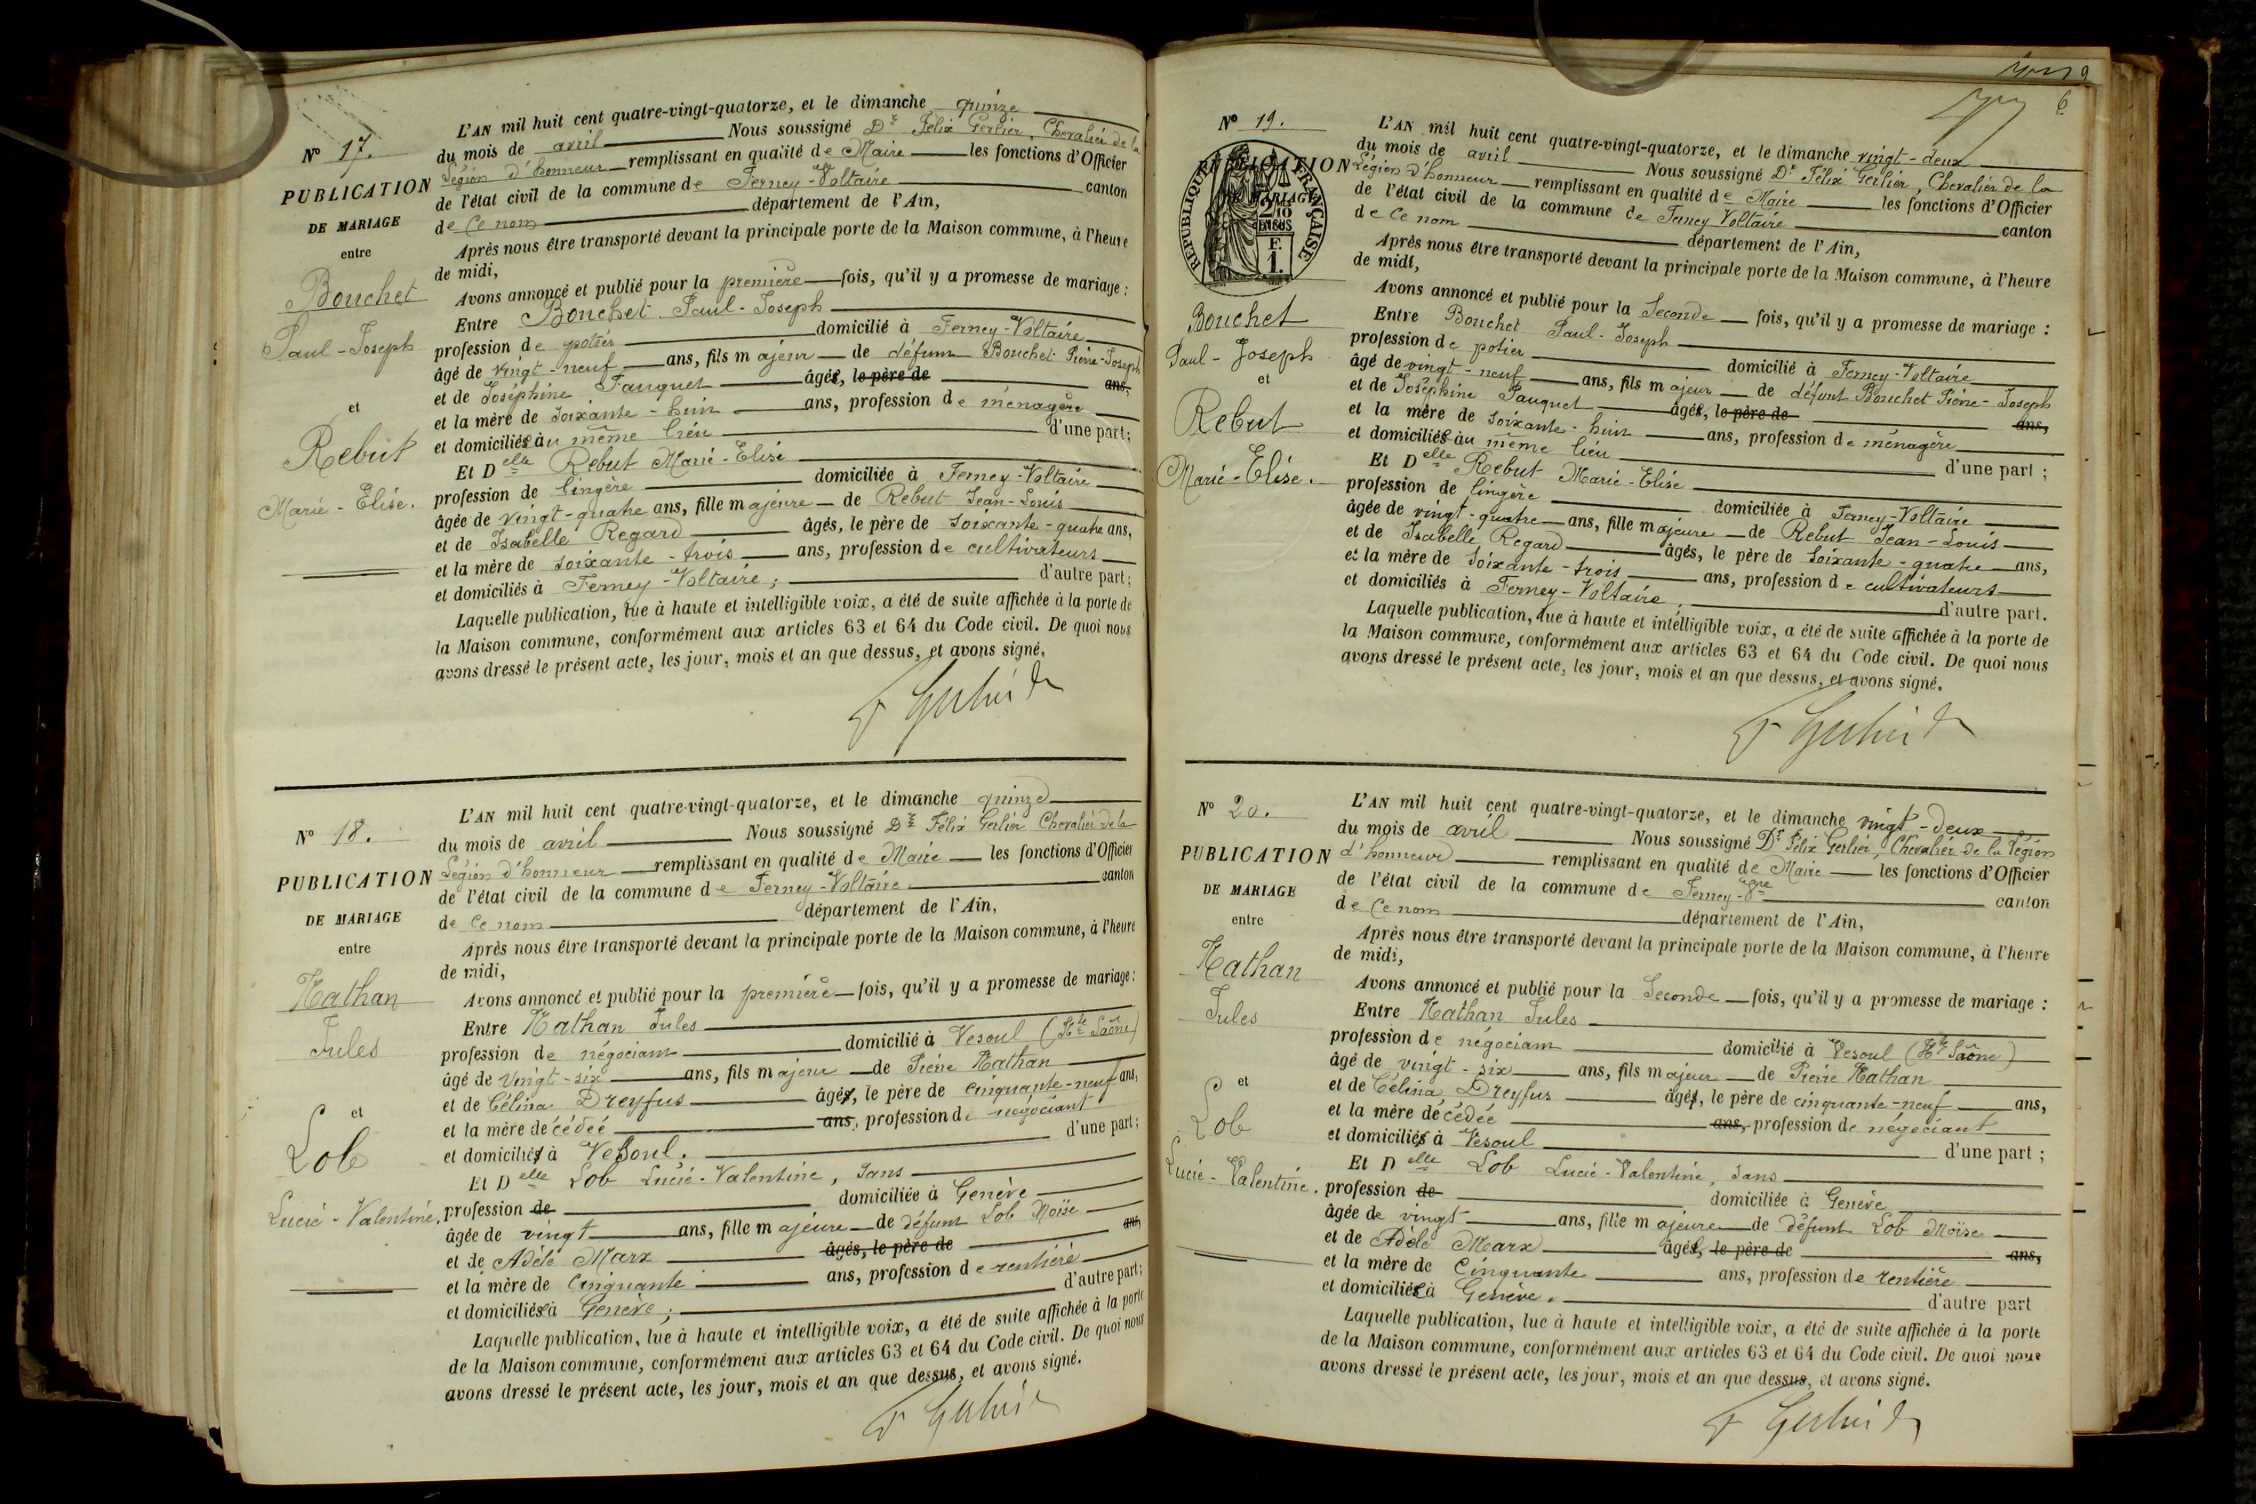 Nº 17.
PUBLICATION
DE MARIAGE
entre
Bouchet
Paul-Joseph
et
Rebut
Marie-Elise.
L'AN mil huit cent quatre-vingt-quatorze, et le dimanche quinze
du mois de avril Nous soussigné Dr Félix Gerlier, Chevalier de la
Légion d'honneur remplissant en qualité de Maire les fonctions d'Officier
de l'état civil de la commune de Ferney-Voltaire canton
de ce nom département de l'Ain,
Après nous être transporté devant la principale porte de la Maison commune, à l'heure
de midi,
Avons annoncé et publié pour la première fois, qu'il y a promesse de mariage :
Entre Bouchet Paul-Joseph
profession de potier domicilié à Ferney-Voltaire
âgé de vingt-neuf ans, fils majeur de défunt Bouchet Pierre-Joseph
et de Joséphine Fauquet âgée, le père de ans,
et la mère de soixante-huit ans, profession de ménagère
et domiciliée au même lieu d'une part;
Et Delle Rebut Marie-Elise
profession de lingère domiciliée à Ferney-Voltaire
âgée de vingt-quatre ans, fille majeure de Rebut Jean-Louis
et de Isabelle Regard âgés, le père de soixante-quatre ans,
et la mère de soixante-trois ans, profession de cultivateurs
et domiciliés à Ferney-Voltaire; d'autre part;
Laquelle publication, lue à haute et intelligible voix, a été de suite affichée à la porte de
la Maison commune, conformément aux articles 63 et 64 du Code civil. De quoi nous
avons dressé le présent acte, les jour, mois et an que dessus, et avons signé.
F Gerlier Dr
Nº 18.
PUBLICATION
DE MARIAGE
entre
Nathan
Jules
et
Lob
Lucie-Valentine.
L'AN mil huit cent quatre-vingt-quatorze, et le dimanche quinze
du mois de avril Nous soussigné Dr Félix Gerlier Chevalier de la
Légion d'honneur remplissant en qualité de Maire les fonctions d'Officier
de l'état civil de la commune de Ferney-Voltaire canton
de ce nom département de l'Ain,
Après nous être transporté devant la principale porte de la Maison commune, à l'heure
de midi,
Avons annoncé et publié pour la première fois, qu'il y a promesse de mariage :
Entre Nathan Jules
profession de négociant domicilié à Vesoul (Hte Saône)
âgé de vingt-six ans, fils majeur de Pierre Nathan
et de Célina Dreyfus âgés, le père de cinquante-neuf ans,
et la mère décédée ans, profession de négociant
et domiciliés à Vesoul. d'une part;
Et Delle Lob Lucie-Valentine, sans
profession de domiciliée à Genève
âgée de vingt ans, fille majeure de défunt Lob Moïse
et de Adèle Marx âgés, le père de ans,
et la mère de cinquante ans, profession de rentière
et domiciliée à Genève; d'autre part;
Laquelle publication, lue à haute et intelligible voix, a été de suite affichée à la porte
de la Maison commune, conformément aux articles 63 et 64 du Code civil. De quoi nous
avons dressé le présent acte, les jour, mois et an que dessus, et avons signé.
F Gerlier Dr
6
Nº 19.
PUBLICATION
DE MARIAGE
RÉPUBLIQUE FRANÇAISE
2/10
EN SUS
F.
1.
Bouchet
Paul-Joseph
et
Rebut
Marie-Elise.
L'AN mil huit cent quatre-vingt-quatorze, et le dimanche vingt-deux
du mois de avril Nous soussigné Dr Félix Gerlier, Chevalier de la
Légion d'honneur remplissant en qualité de Maire les fonctions d'Officier
de l'état civil de la commune de Ferney Voltaire canton
de ce nom département de l'Ain,
Après nous être transporté devant la principale porte de la Maison commune, à l'heure
de midi,
Avons annoncé et publié pour la seconde fois, qu'il y a promesse de mariage :
Entre Bouchet Paul-Joseph
profession de potier domicilié à Ferney-Voltaire
âgé de vingt-neuf ans, fils majeur de défunt Bouchet Pierre-Joseph
et de Joséphine Fauquet âgée, le père de ans,
et la mère de soixante-huit ans, profession de ménagère
et domiciliée au même lieu d'une part ;
Et Delle Rebut Marie-Elise
profession de lingère domiciliée à Ferney-Voltaire
âgée de vingt-quatre ans, fille majeure de Rebut Jean-Louis
et de Isabelle Regard âgés, le père de soixante-quatre ans,
et la mère de soixante-trois ans, profession de cultivateurs
et domiciliés à Ferney-Voltaire d'autre part.
Laquelle publication, lue à haute et intelligible voix, a été de suite affichée à la porte de
la Maison commune, conformément aux articles 63 et 64 du Code civil. De quoi nous
avons dressé le présent acte, les jour, mois et an que dessus, et avons signé.
F Gerlier Dr
Nº 20.
PUBLICATION
DE MARIAGE
entre
Nathan
Jules
et
Lob
Lucie-Valentine.
L'AN mil huit cent quatre-vingt-quatorze, et le dimanche vingt-deux
du mois de avril Nous soussigné Dr Félix Gerlier, Chevalier de la Légion
d'honneur remplissant en qualité de Maire les fonctions d'Officier
de l'état civil de la commune de Ferney-Vre canton
de ce nom département de l'Ain,
Après nous être transporté devant la principale porte de la Maison commune, à l'heure
de midi,
Avons annoncé et publié pour la seconde fois, qu'il y a promesse de mariage :
Entre Nathan Jules
profession de négociant domicilié à Vesoul (Hte Saône)
âgé de vingt-six ans, fils majeur de Pierre Nathan
et de Célina Dreyfus âgés, le père de cinquante-neuf ans,
et la mère décédée ans, profession de négociant
et domiciliés à Vesoul d'une part ;
Et Delle Lob Lucie-Valentine, sans
profession de domiciliée à Genève
âgée de vingt ans, fille majeure de défunt Lob Moïse
et de Adèle Marx âgée, le père de ans,
et la mère de cinquante ans, profession de rentière
et domiciliée à Genève. d'autre part
Laquelle publication, lue à haute et intelligible voix, a été de suite affichée à la porte
de la Maison commune, conformément aux articles 63 et 64 du Code civil. De quoi nous
avons dressé le présent acte, les jour, mois et an que dessus, et avons signé.
F Gerlier Dr